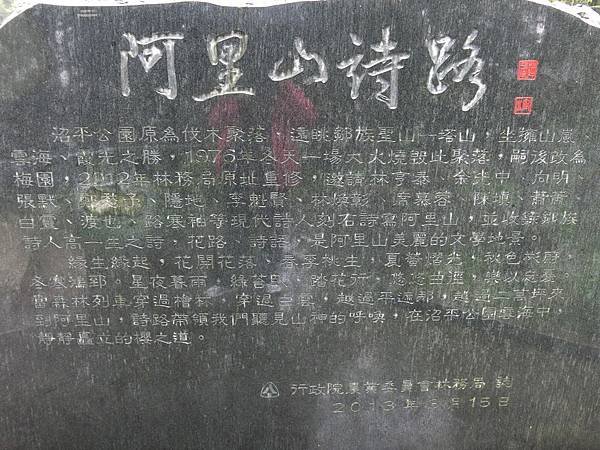 阿里山詩路
沼平公園原為伐木聚落、遠眺鄒族聖山—塔山,坐擁山嵐、
雲海、霞光之勝,1976年冬天一場大火燒毀此聚落,嗣後改為
梅園,2012年林務局原址重修,邀請林亨泰、余光中、向明、
張默、隱地、李魁賢、林煥彰、席慕蓉、陳填、蕭蕭、
白靈、渡也、路寒袖等現代詩人刻石詩寫阿里山,並收錄鄒族
詩人高一生之詩,花路、詩語,是阿里山美麗的文學地景。
緣生緣起,花開花落、春季桃生,夏螢熠光,秋色
星夜春雨、綠苔 、踏花行、悠悠白
森林列車穿過檜林、穿過白雲,越過平遮那,越過二萬坪來
到阿里山,詩路帶領我們聽見山神的呼喚,在沼平公園雲海中,
靜靜矗立的櫻之道。
行政院農業委員會林務局 誌
2013年 月15日